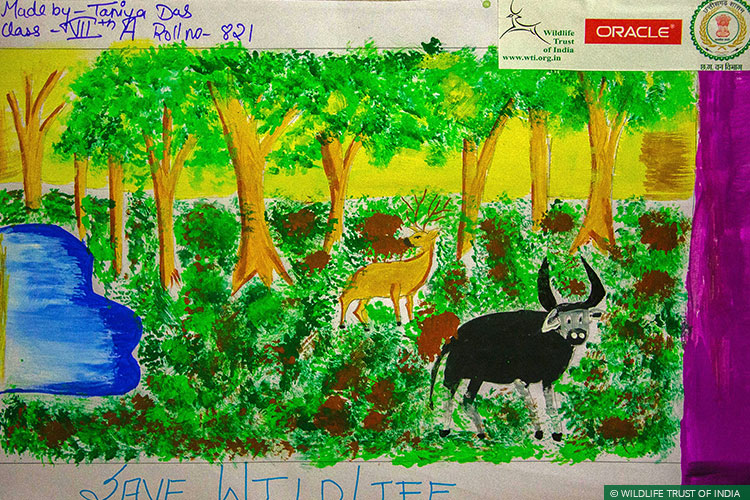 Made by - Taniya Das
Class - VIIth A Roll no - 821
Wildlife Trust of India
www.wti.org.in
ORACLE
छ.ग. वन विभाग
SAVE WILDLIFE
© WILDLIFE TRUST OF INDIA